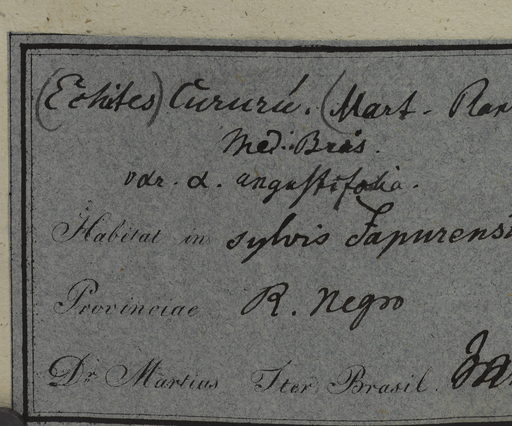 (Echites) Cururú. (Mart - Ran
Med. Bras.
var. α. angustifolia.
Habitat in sylvis Japurensi
Provinciae R. Negro
Dr. Martius Iter Brasil.